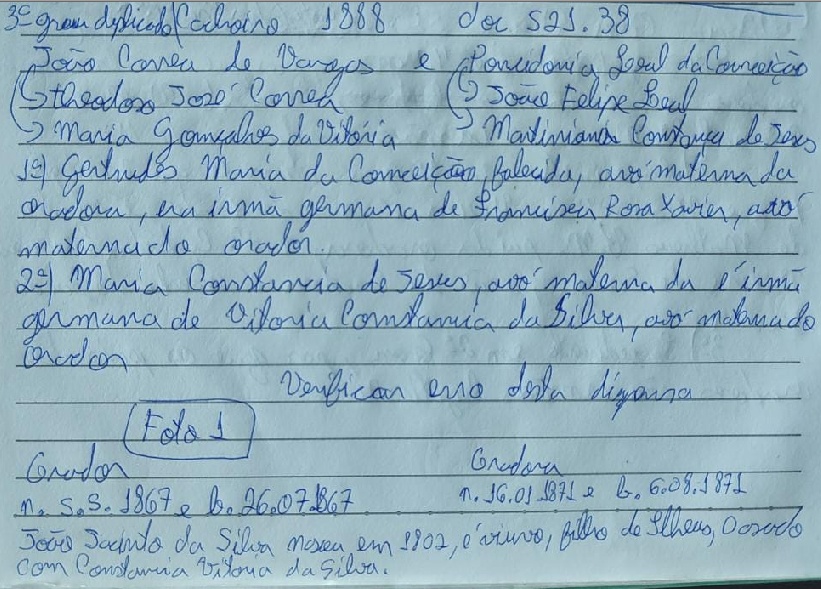 3º grau duplicado | Cachoeiro 1888 doc 521.38
João Correa de Vargas e Poncidonia Leal da Conceição
↳ Theodoro José Correa ↳ João Felipe Leal
↳ Maria Gonçalves da Vitória ↳ Martiniana Constança de Jesus
1º) Gertrudes Maria da Conceição, falecida, avó materna da
oradora, era irmã germana de Francisca Rosa Xavier, avó
materna do orador.
2º) Maria Constancia de Jesus, avó materna da é irmã
germana de Vitoria Constancia da Silva, avó materna do
orador
Verificar erro desta
Foto 1
Orador Oradora
n. 5.5.1867 e b. 26.07.1867 n. 16.01.1871 e b. 6.08.1871
João Jacinto da Silva nasceu em 1802, é viuvo, filho de Ilheus, casado
com Constancia Vitoria da Silva.